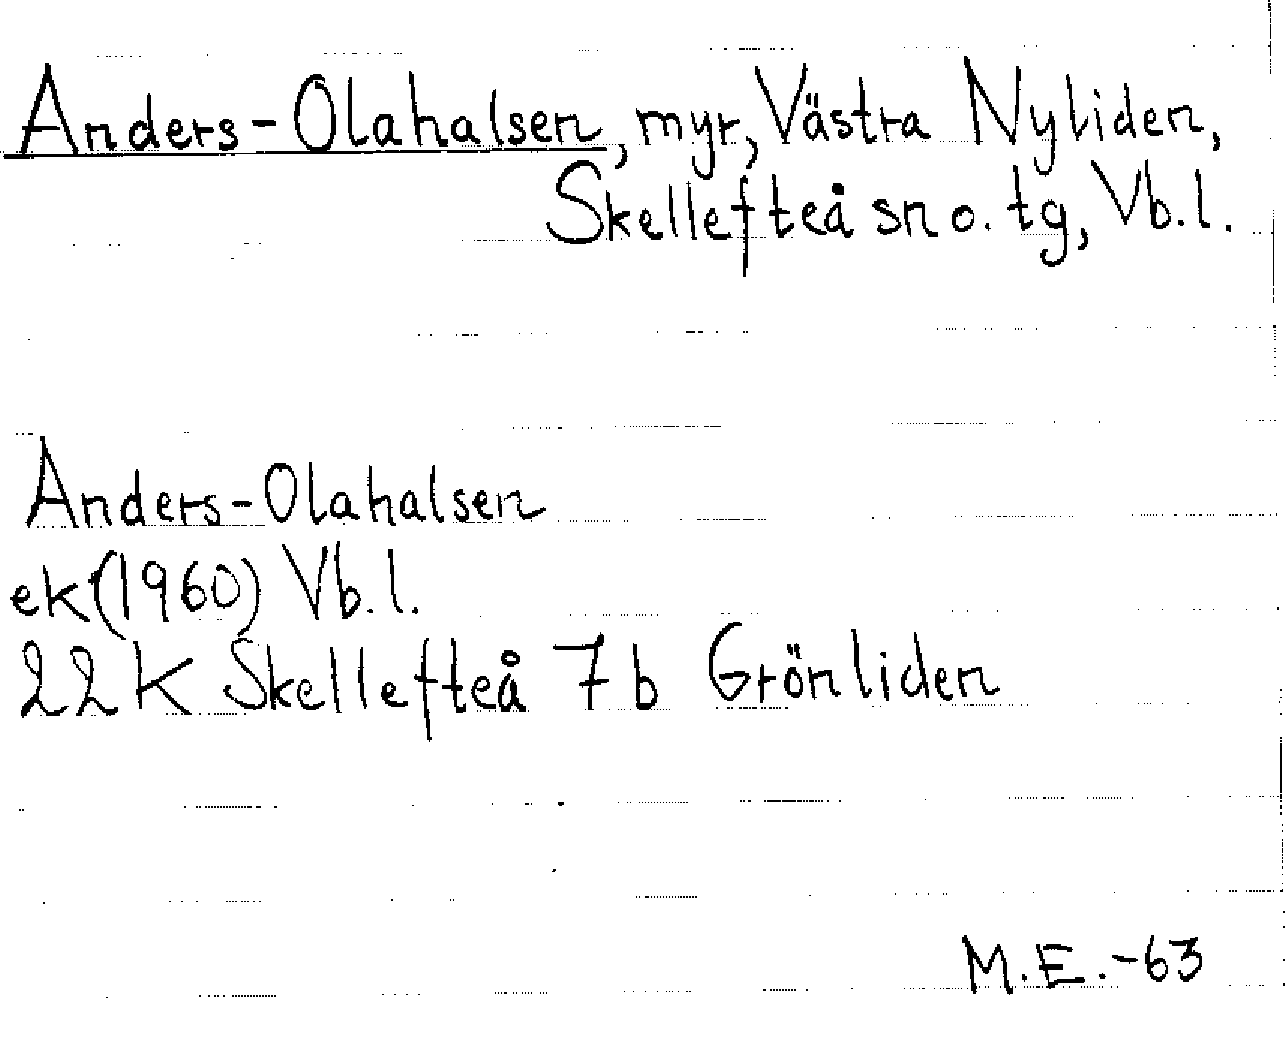 Anders-Olahalsen, myr, Västra Nyliden,
Skellefteå sn o. tg, Vb. l.
Anders-Olahalsen
ek (1960) Vb. l.
22 K Skellefteå 7 b Grönliden
M.E.-63